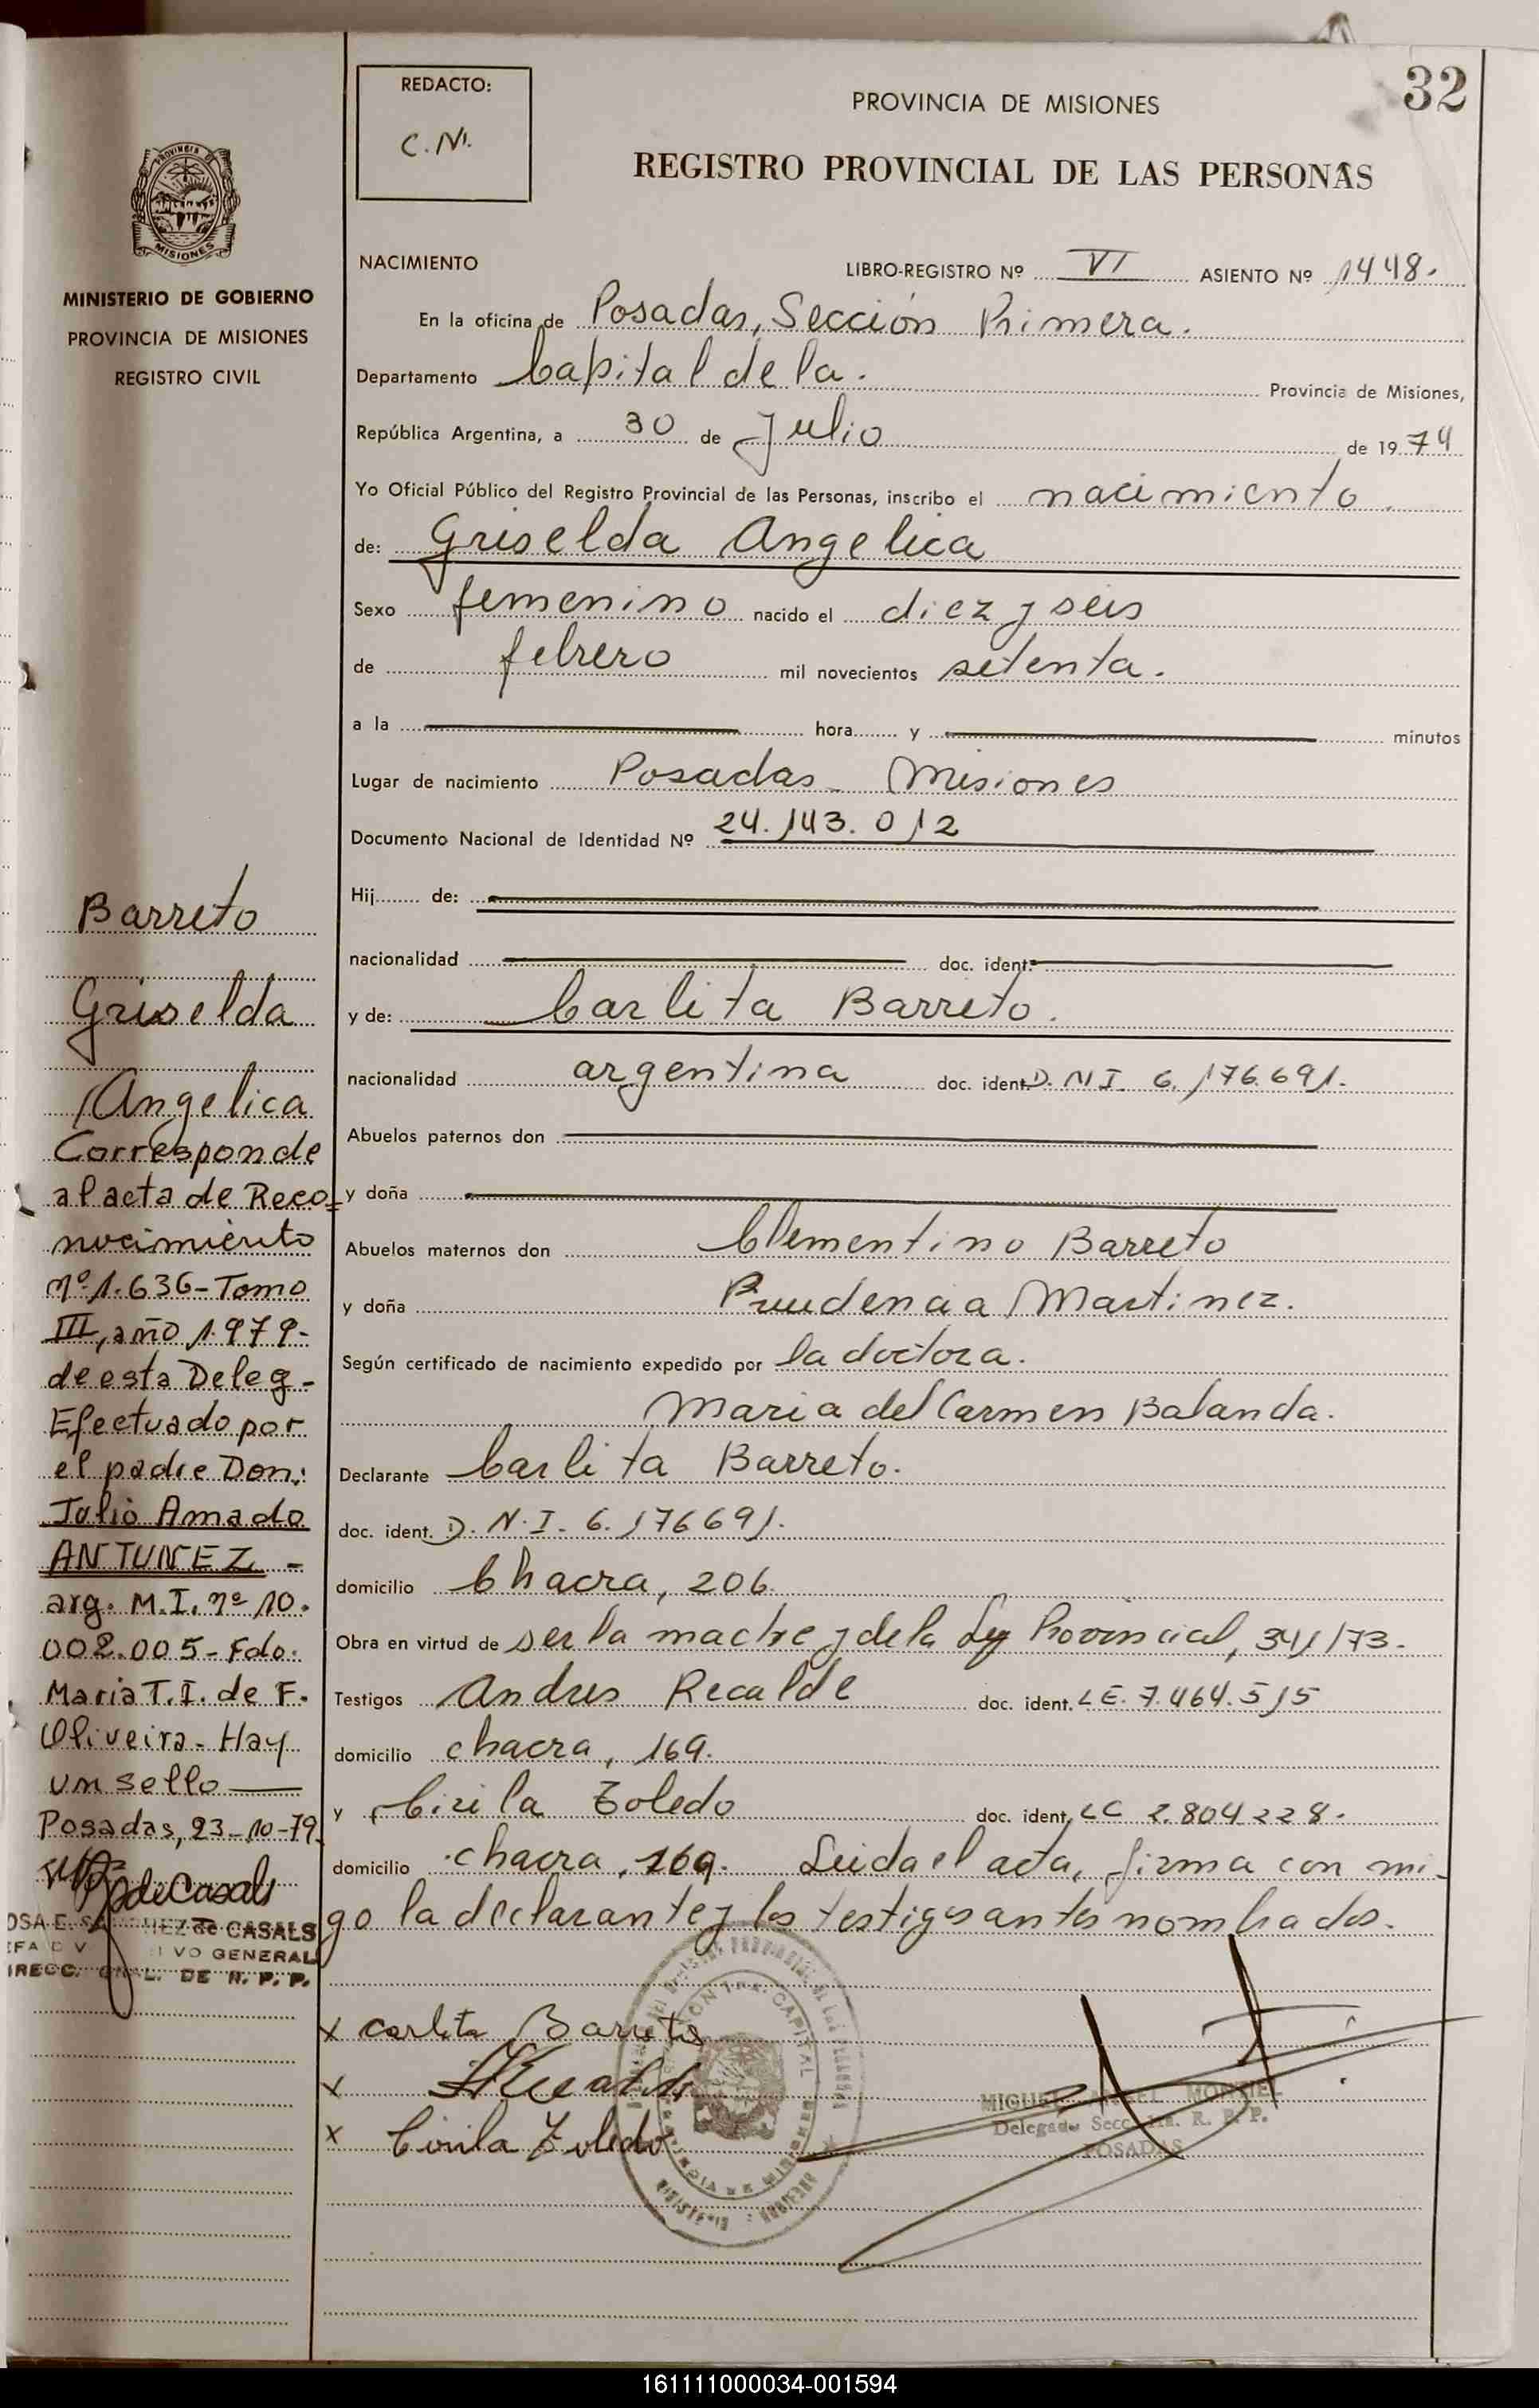 32
REDACTO:
C.N.
PROVINCIA DE MISIONES
REGISTRO PROVINCIAL DE LAS PERSONAS
PROVINCIA DE
MISIONES
MINISTERIO DE GOBIERNO
PROVINCIA DE MISIONES
REGISTRO CIVIL
NACIMIENTO
LIBRO-REGISTRO Nº VI ASIENTO Nº 1448.
En la oficina de Posadas, Sección Primera.
Departamento Capital de la. Provincia de Misiones,
República Argentina, a 30 de Julio de 1974
Yo Oficial Público del Registro Provincial de las Personas, inscribo el nacimiento.
de: Griselda Angelica
Sexo femenino nacido el diez y seis
de febrero mil novecientos setenta.
a la hora y minutos
Lugar de nacimiento Posadas Misiones
Documento Nacional de Identidad Nº 24.143.012
Hij de:
nacionalidad doc. ident.
y de: Carlita Barreto.
nacionalidad argentina doc. ident. D.N.I. 6.176.691.
Abuelos paternos don
y doña
Abuelos maternos don Clementino Barreto
y doña Prudencia Martinez.
Según certificado de nacimiento expedido por la doctora.
Maria del Carmen Balanda.
Declarante Carlita Barreto.
doc. ident. D.N.I. 6.176691.
domicilio Chacra, 206.
Obra en virtud de ser la madre y de la Ley Provincial, 341/73.
Testigos Andres Recalde doc. ident. LE. 7.464.515
domicilio chacra, 169.
y Cirila Toledo doc. ident. LC 2.804228.
domicilio chacra, 169. Leida el acta, firma con mi-
go la declarante y los testigos antes nombrados.
x Carlita Barreto
x
x Cirila Toledo
MIGUEL ANGEL MONTIEL
Delegado Secc. R. R. P. P.
POSADAS
Barreto
Griselda
Angelica
Corresponde
al acta de Reco=
nocimiento
nº 1.636-Tomo
III, año 1.979-
de esta Deleg-
Efectuado por
el padre Don:
Julio Amado
ANTUNEZ -
arg. M.I. nº 10.
002.005-Fdo:
Maria T.I. de F.
Oliveira- Hay
un sello
Posadas, 23-10-79.
de Casals
de CASALS
VO GENERAL
DE R. P. P.
161111000034-001594